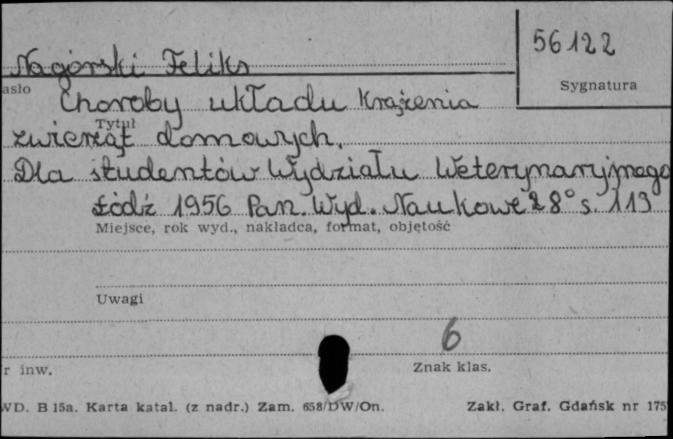 56122
Nagórski Feliks
asło
Sygnatura
Choroby układu krążenia
Tytuł
zwierząt domowych.
Dla studentów Wydziału Weterynaryjnego
Łódź 1956 Pań. Wyd. Naukowe 8° s. 113
Miejsce, rok wyd., nakładca, format, objętość
Uwagi
6
r inw.
Znak klas.
WD. B 15a. Karta katal. (z nadr.) Zam. 658/DW/On.
Zakł. Graf. Gdańsk nr 175